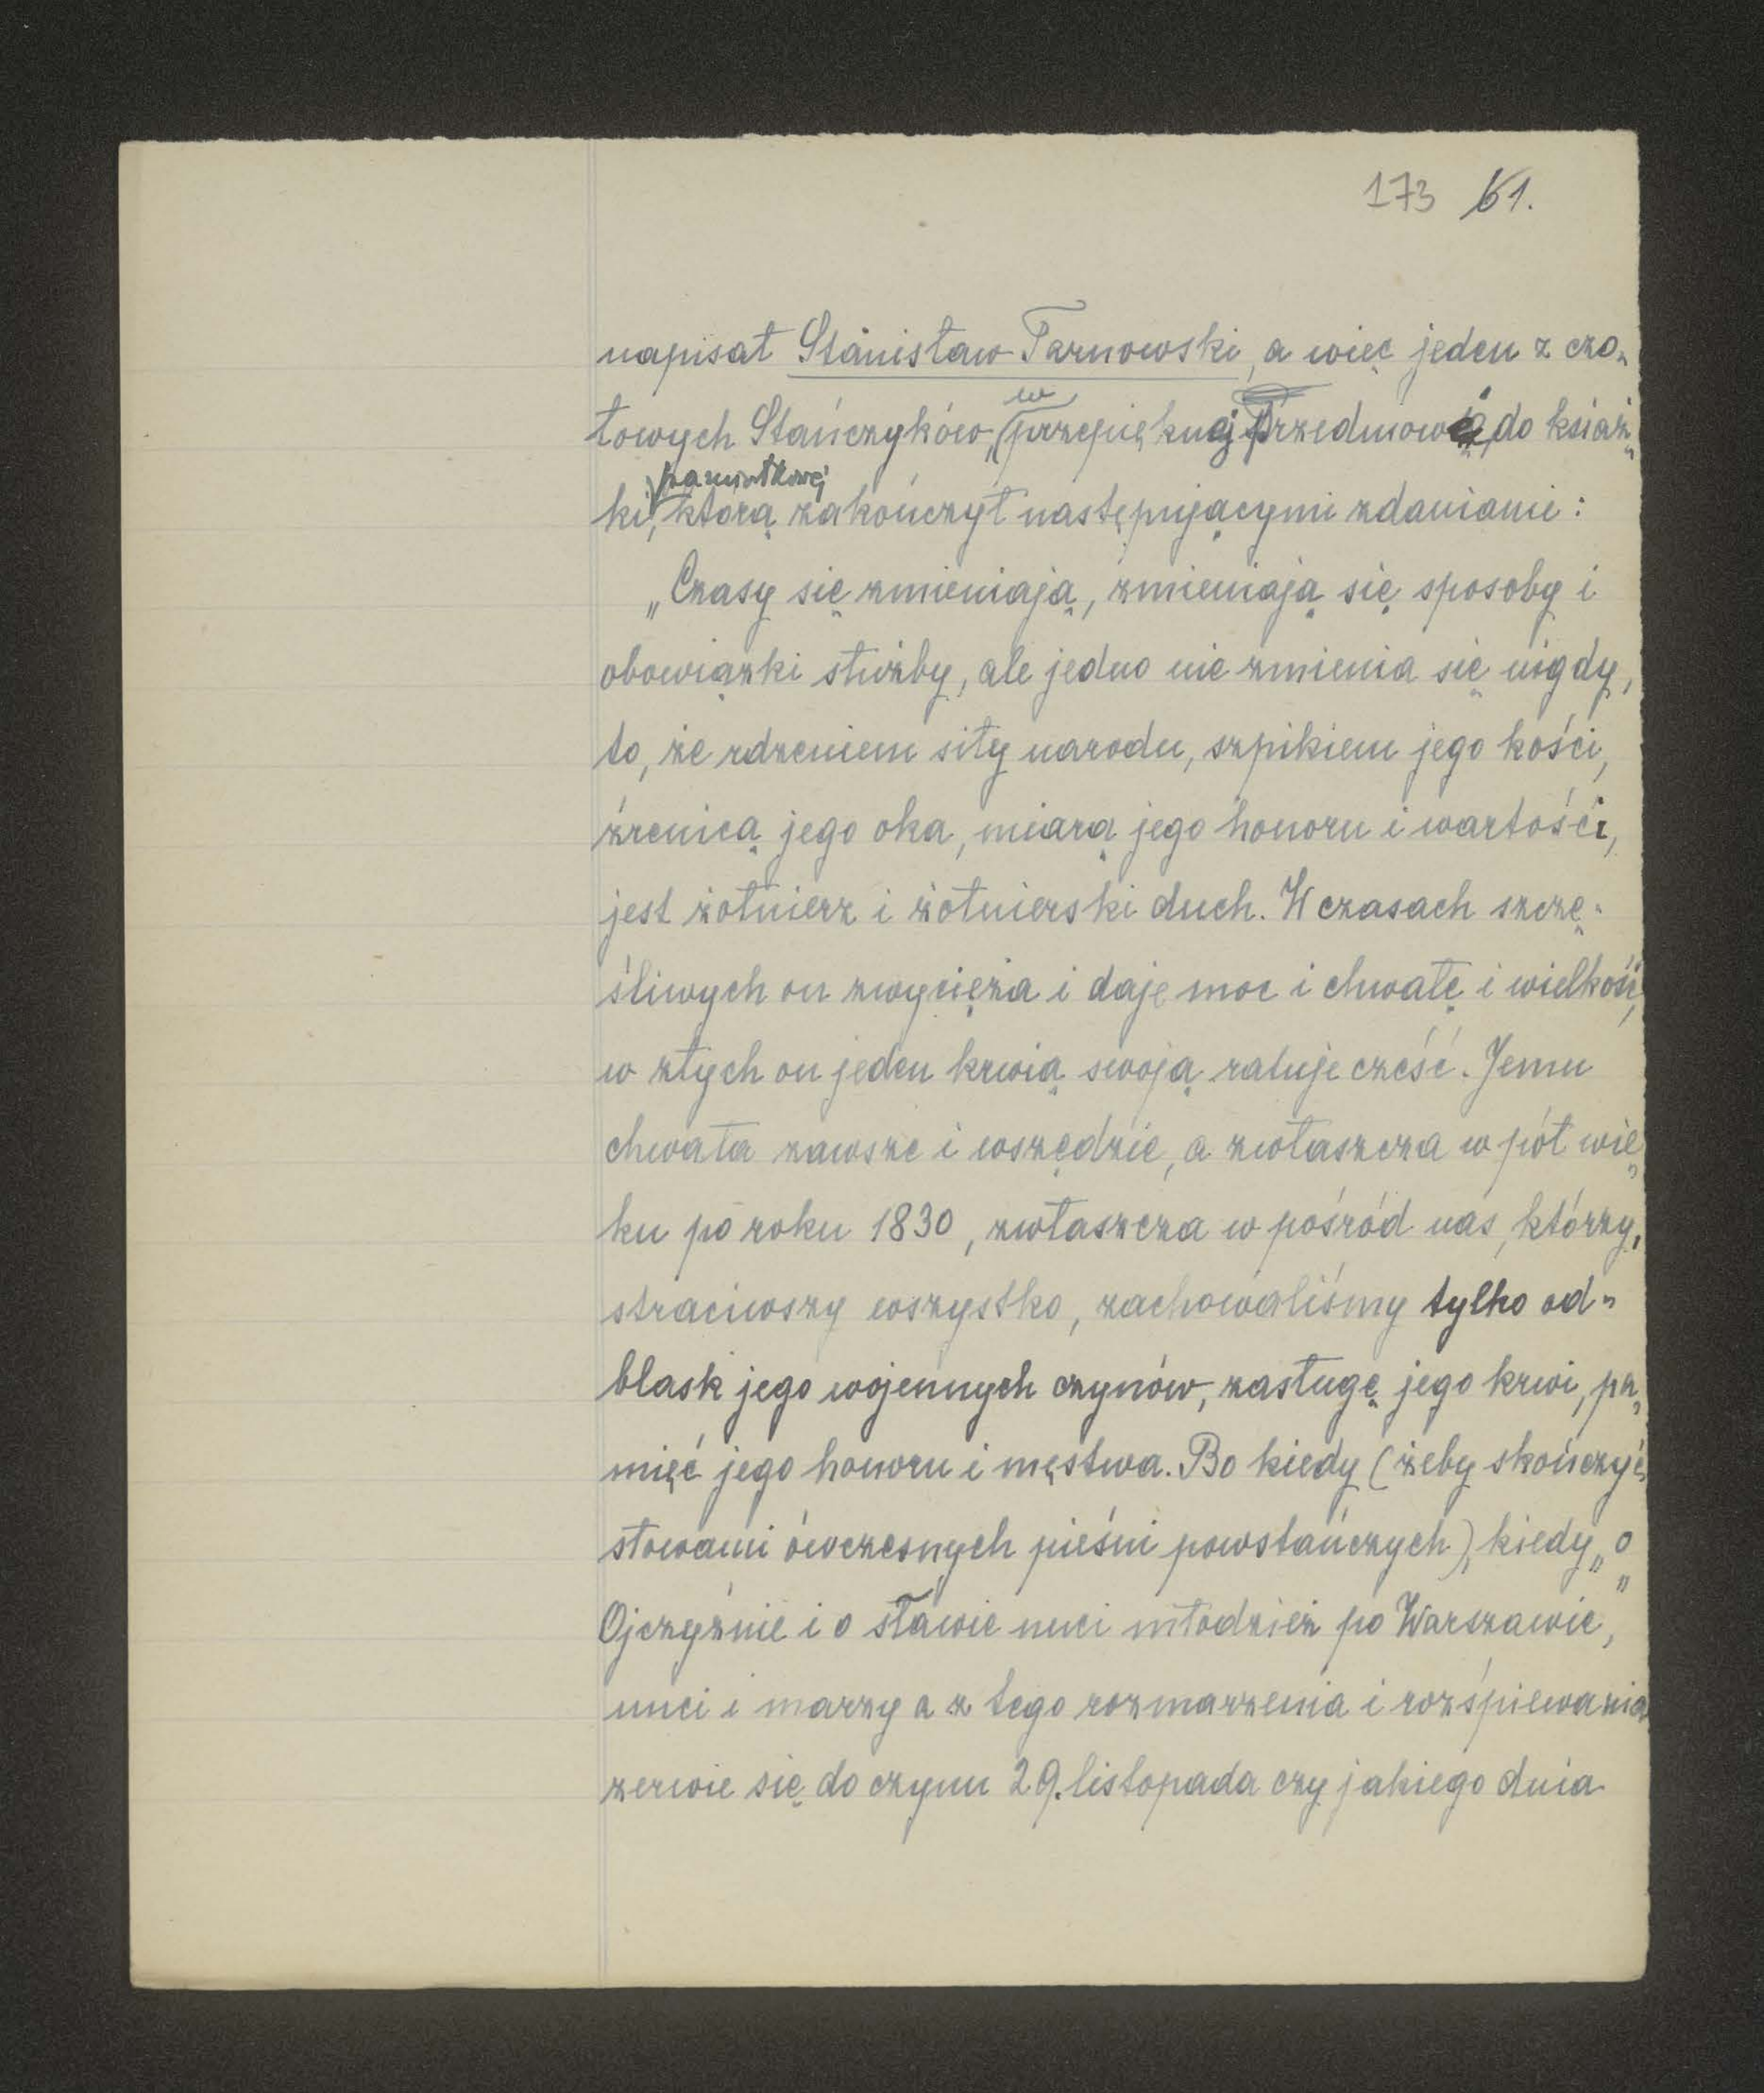 173 61.
napisał Stanisław Tarnowski, a więc jeden z czo-
łowych Stańczyków, w przepięknej Przedmowie do książ-
pamiątkowej
ki, którą zakończył następującymi zdaniami:
„Czasy się zmieniają, zmieniają się sposoby i
obowiązki służby, ale jedno nie zmienia się nigdy,
to, że rdzeniem siły narodu, szpikiem jego kości,
źrenicą jego oka, miarą jego honoru i wartości,
jest żołnierz i żołnierski duch. W czasach szczę-
śliwych on zwycięża i daje moc i chwałę i wielkość,
w złych on jeden krwią swoją ratuje cześć. Jemu
chwała zawsze i wszędzie, a zwłaszcza w pół wie-
ku po roku 1830, zwłaszcza w pośród nas, którzy,
straciwszy wszystko, zachowaliśmy tylko od-
blask jego wojennych czynów, zasługę jego krwi, pa-
mięć jego honoru i męstwa. Bo kiedy (żeby skończyć
słowami ówczesnych pieśni powstańczych), kiedy „o
Ojczyźnie i o sławie nuci młodzież po Warszawie,"
nuci i marzy a z tego rozmarzenia i rozśpiewania
zerwie się do czynu 29. listopada czy jakiego dnia